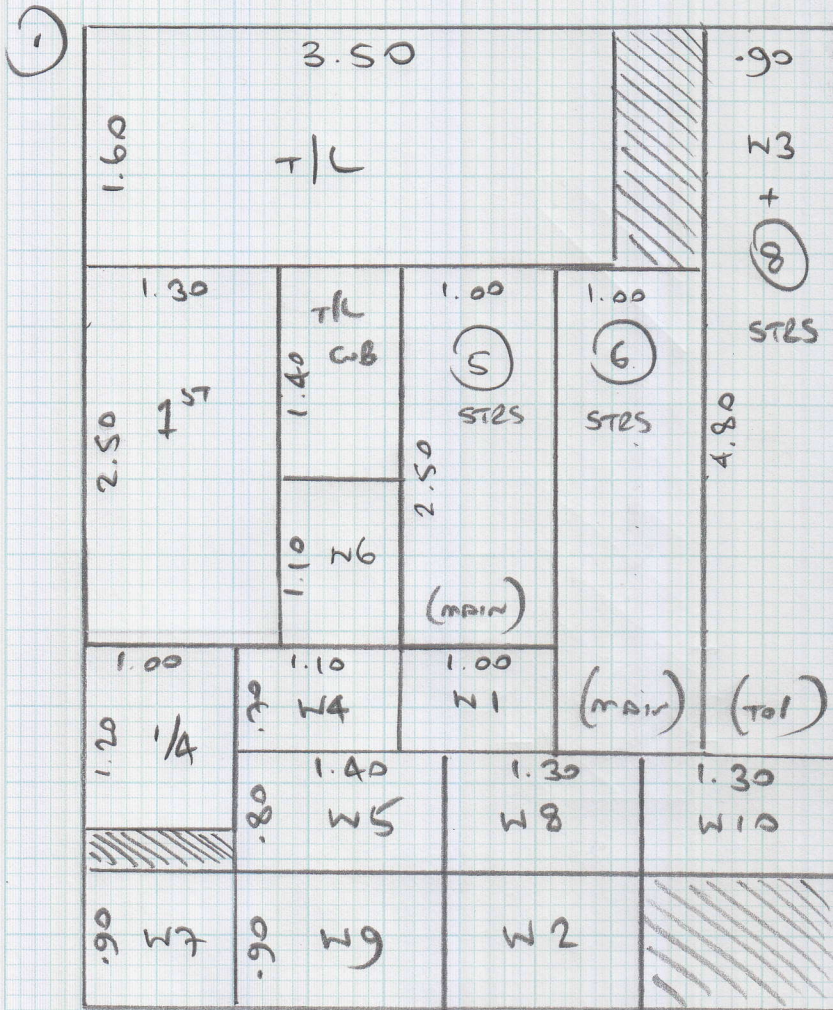 1
3.50
1.60
T/L
.90
W3
+
8
STRS
4.80
(TOP)
1.30
2.50
1ST
T/L
CUB
1.40
1.10
W6
1.00
5
STRS
2.50
(MAIN)
1.00
6
STRS
(MAIN)
1.00
1.20
1/4
1.10
.70
W4
1.00
W1
1.40
.80
W5
1.30
W8
1.30
W10
.90
W7
.90
W9
W2